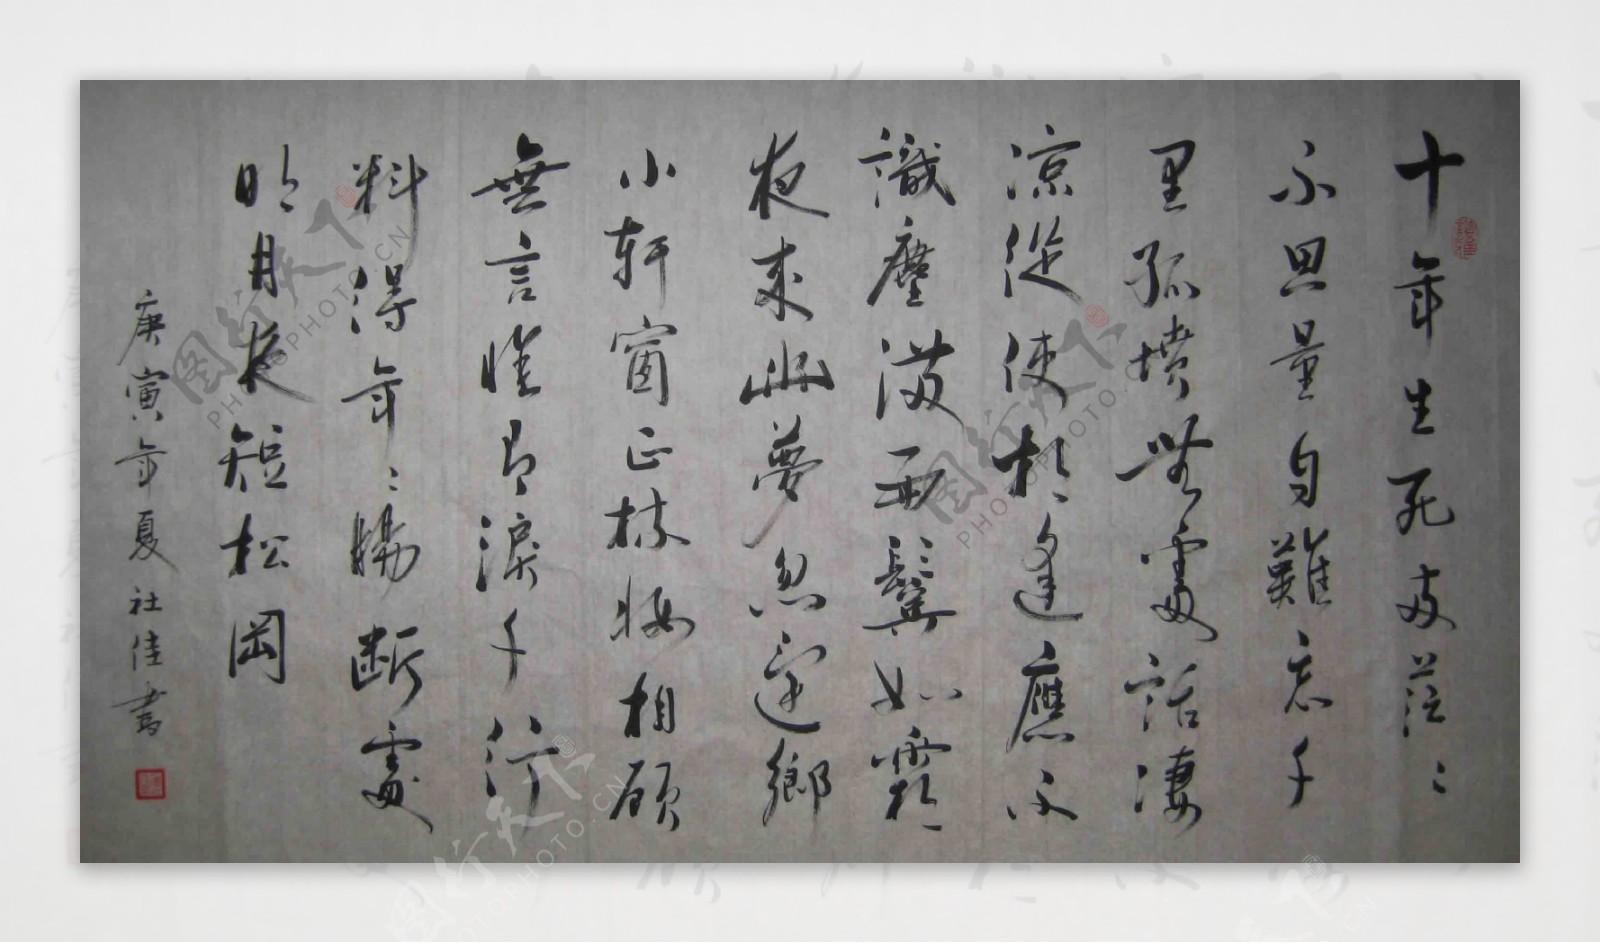 十年生死两茫〻
不思量自難忘千
里孤墳無處話淒
涼從使相逢應不
識塵滿面鬢如霜
夜來幽夢忽還鄉
小軒窗正梳妝相顧
無言惟有淚千行
料得年〻腸斷處
明月夜短松岡
庚寅年夏杜佳書
图行天下
PHOTOPHOTO.CN
图行天下
PHOTOPHOTO.CN
图行天下
PHOTOPHOTO.CN